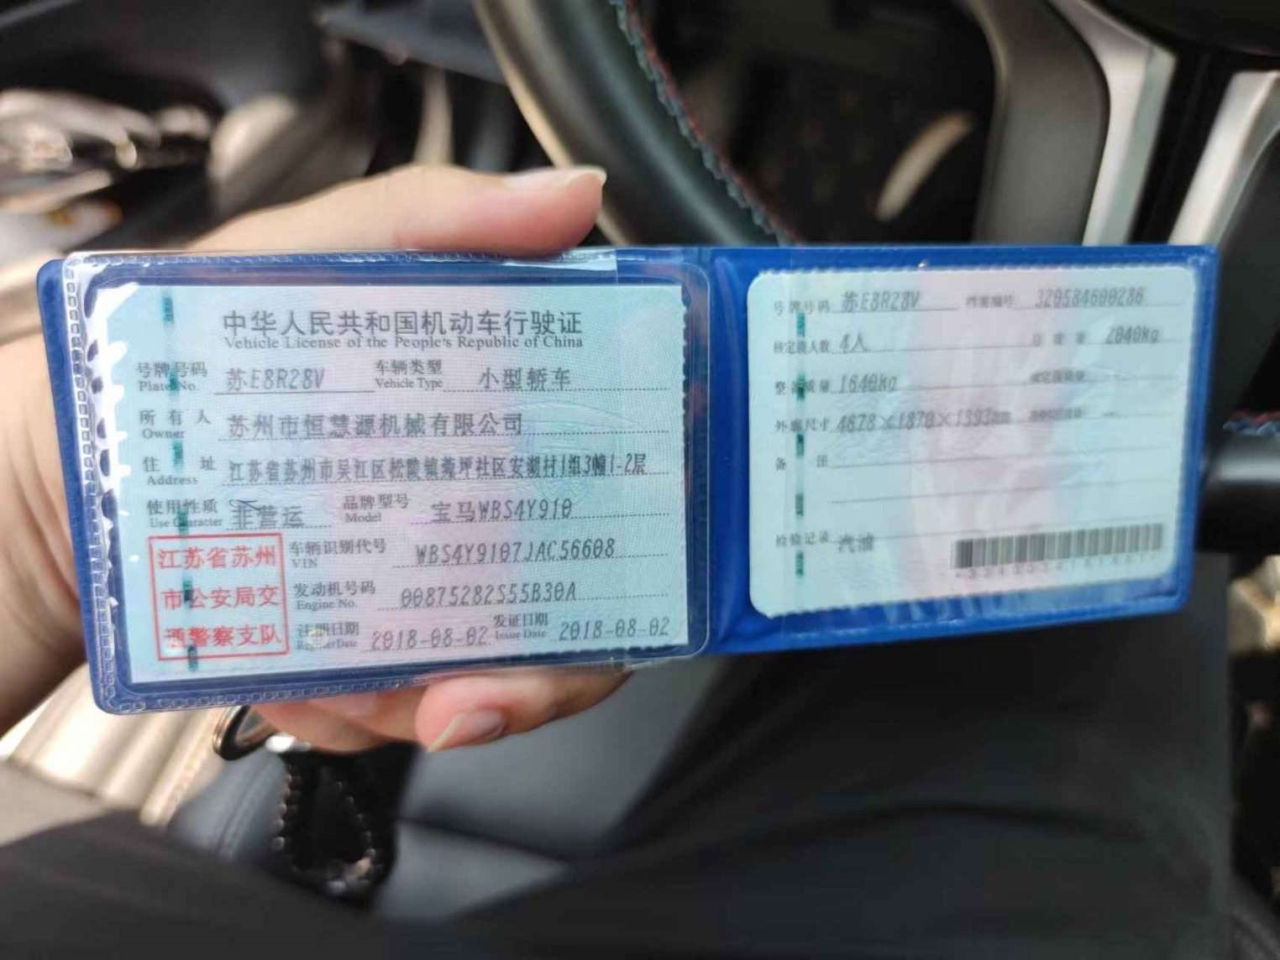 中华人民共和国机动车行驶证
Vehicle License of the People's Republic of China
号牌号码 苏E8R28V 车辆类型 小型轿车
Plate No. Vehicle Type
所有人 苏州市恒慧源机械有限公司
Owner
住址 江苏省苏州市吴江区松陵镇 社区安湖村1组3幢1-2层
Address
使用性质 非营运 品牌型号 宝马WBS4Y910
Use Character Model
江苏省苏州
市公安局交
通警察支队
车辆识别代号 WBS4Y9107JAC56608
VIN
发动机号码 00875282S55B30A
Engine No.
注册日期 2018-08-02 发证日期 2018-08-02
Register Date Issue Date
号牌号码 苏E8R28V 档案编号 320584600286
核定载人数 4人 总质量 2040kg
整备质量 1640kg 核定载质量
外廓尺寸 4678×1870×1393mm
备注
检验记录 汽油